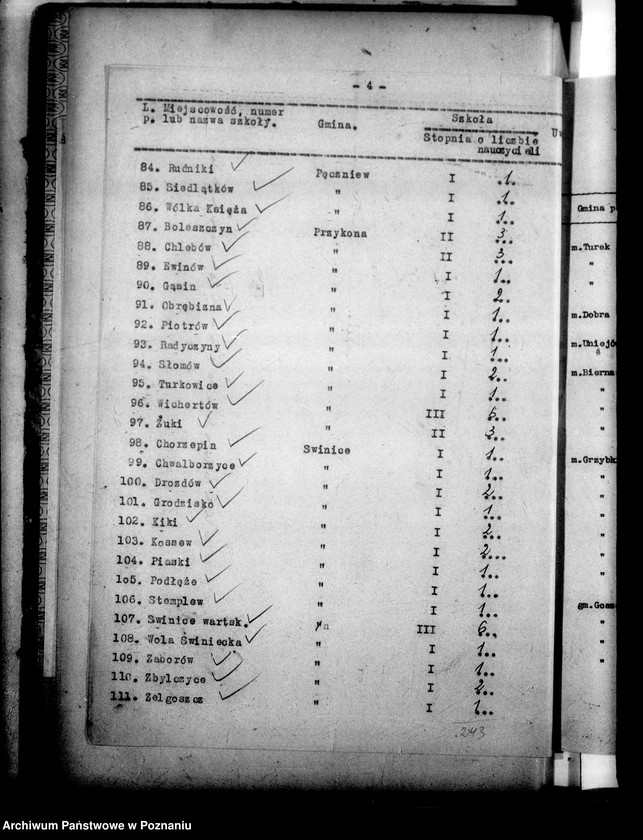 - 4 -
L. Miejscowość, numer
p. lub nazwa szkoły.
Gmina.
Szkoła
Stopnia o liczbie
nauczycieli
84. Rudniki Pęczniew I 1.
85. Siedlątków " I 1.
86. Wólka Księża " I 1..
87. Boleszczyn Przykona II 3..
88. Chlebów " II 3..
89. Ewinów " I 1..
90. Gąsin " I 2..
91. Obrębizna " I 1..
92. Piotrów " I 1..
93. Radyczyny " I 1..
94. Słomów " I 2..
95. Turkowice " I 1..
96. Wichertów " III 6..
97. Żuki " II 3..
98. Chorzepin Swinice I 1..
99. Chwalborzyce " I 1..
100. Drozdów " I 2..
101. Grodzisko " I 1..
102. Kiki " I 2..
103. Kossew " I 2...
104. Piaski " I 1..
105. Podłęże " I 1..
106. Stemplew " I 1..
107. Swinice wartsk. " III 6..
108. Wola Świniecka " I 1..
109. Zaborów " I 1..
110. Zbylczyce " I 2..
111. Zelgoszcz " I 1..
243
Gmina
m.Turek
"
"
m.Dobra
"
m.Uniejów
"
m.Bierna
"
"
m.Grzybk
"
"
"
"
gm.Gosz
"
"
Archiwum Państwowe w Poznaniu